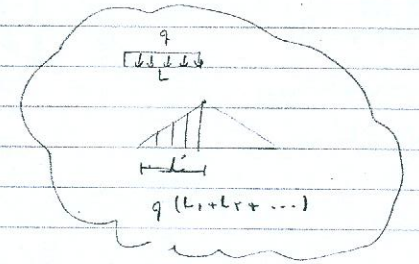 q
L
L'
q (L₁+L₂+ ...)